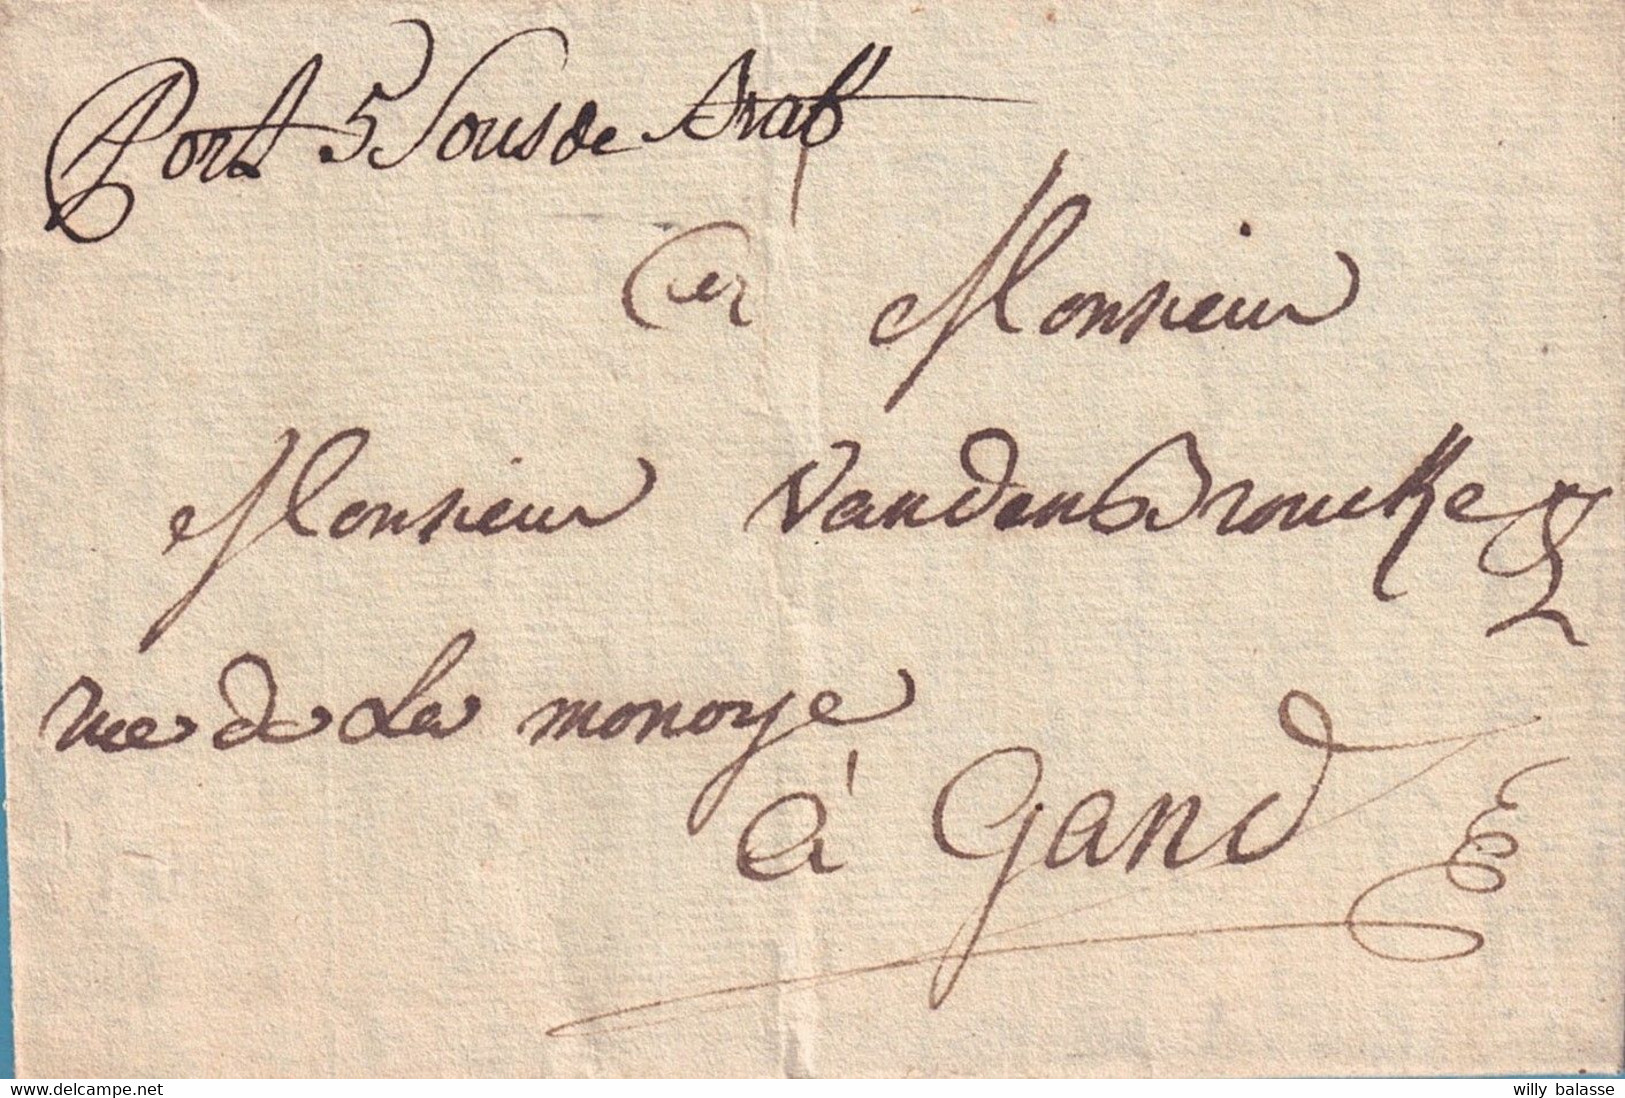 Port 5 Sous de Brab
Monsieur
Monsieur Vanden Broucke
rue de La monoye
à Gand
www.delcampe.net
willy balasse